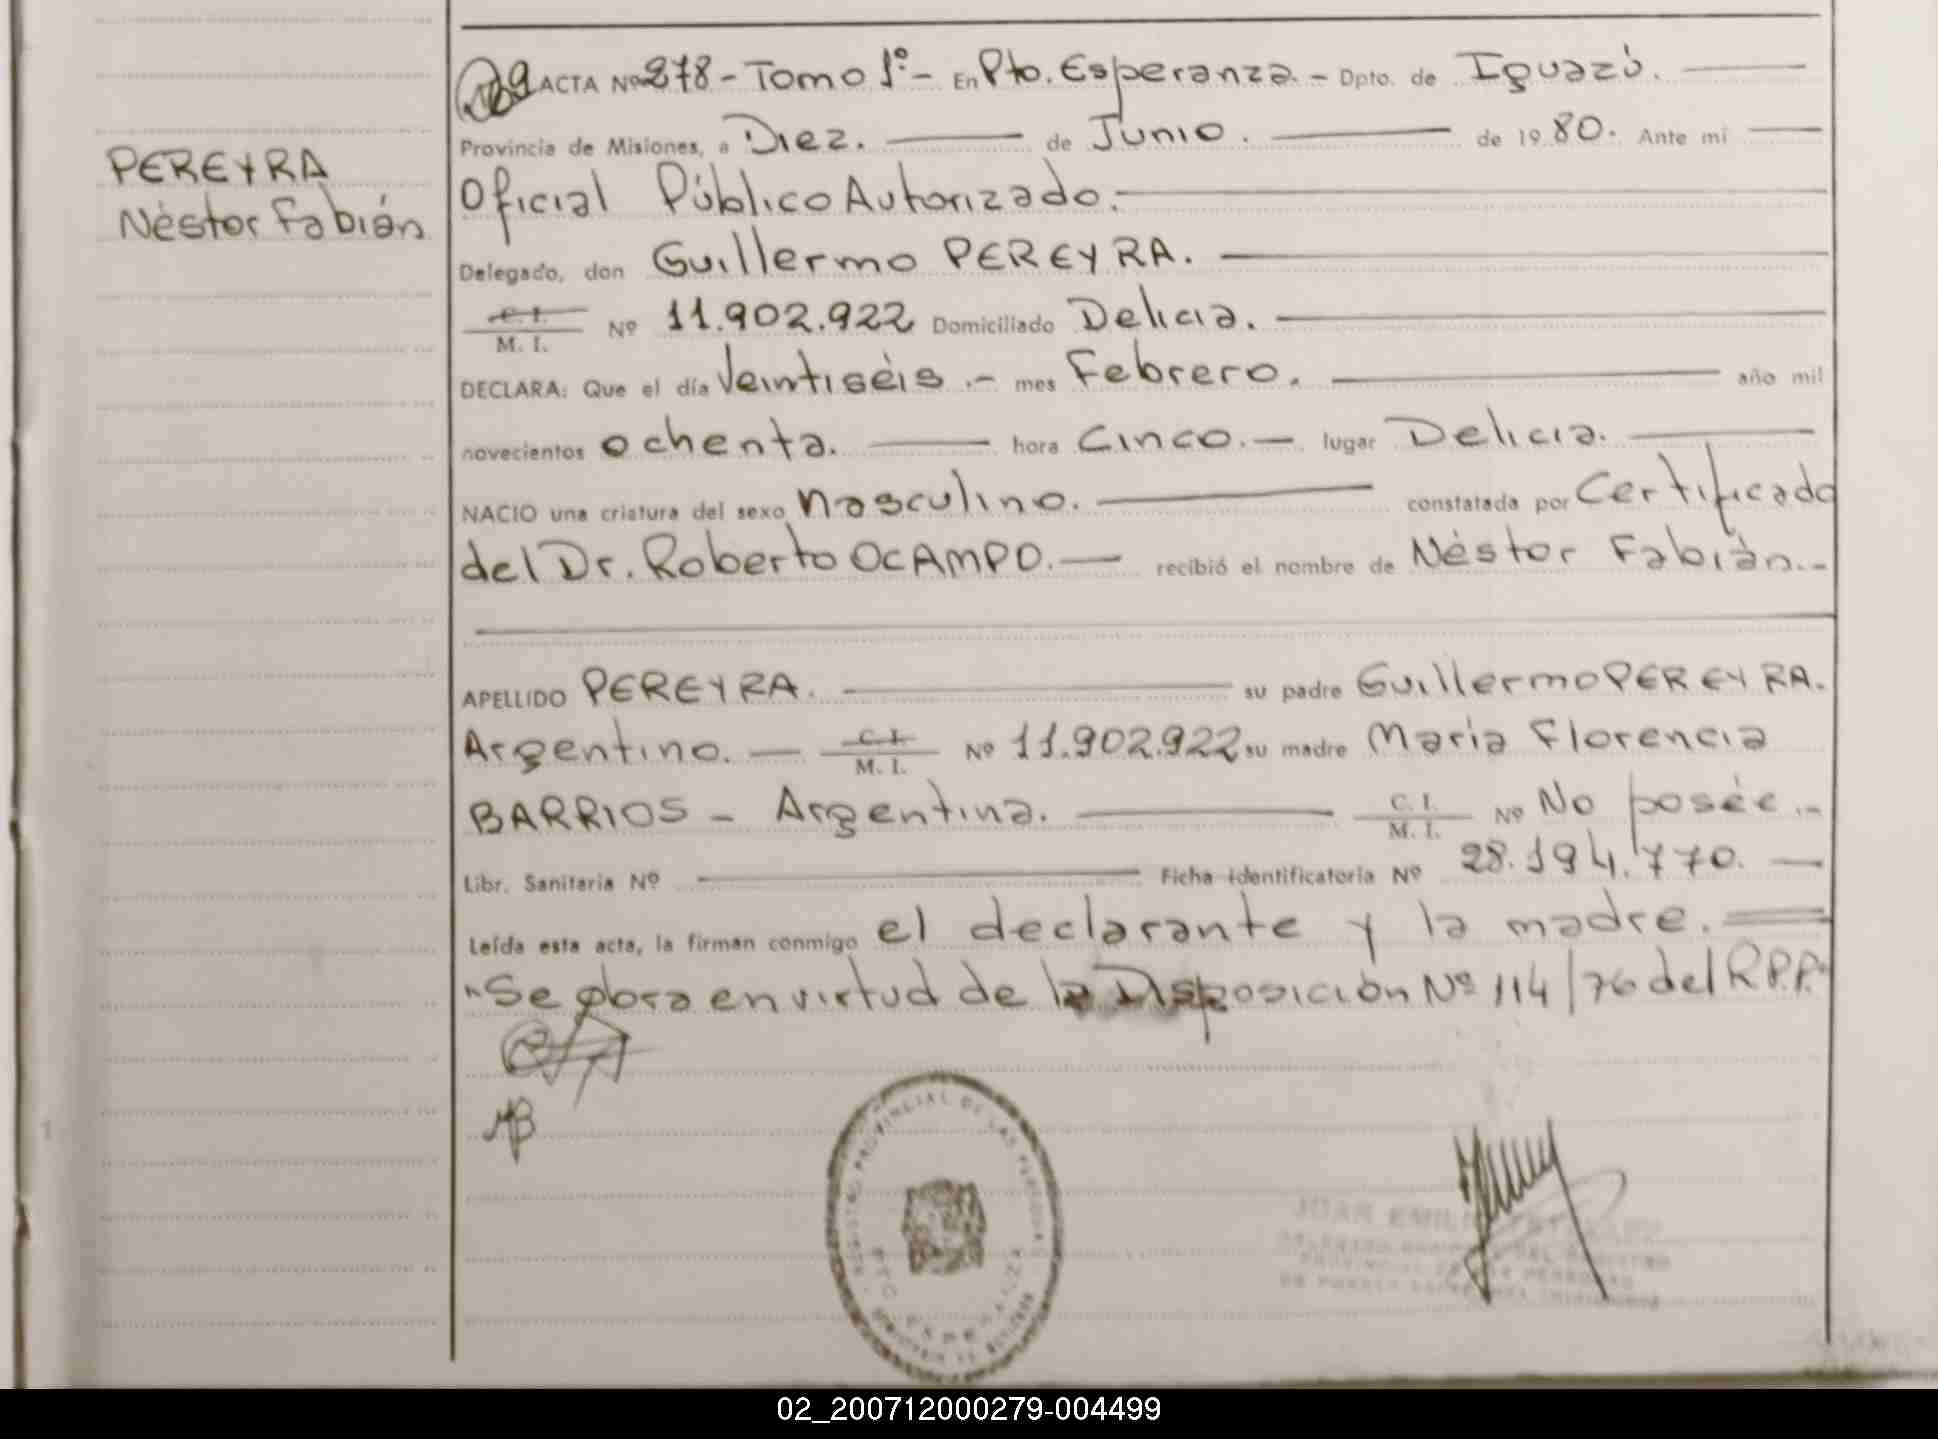 PEREYRA
Néstor Fabián
ACTA Nº 278 - Tomo 1º - En Pto. Esperanza. - Dpto. de Iguazú.
Provincia de Misiones, a Diez. de Junio. de 19 80. Ante mi
Oficial Público Autorizado.
Delegado, don Guillermo PEREYRA.
C. I.
M. I. Nº 11.902.922 Domiciliado Delicia.
DECLARA: Que el día Veintiséis .- mes Febrero. año mil
novecientos ochenta. hora Cinco. - lugar Delicia.
NACIO una criatura del sexo Masculino. constatada por Certificado
del Dr. Roberto OCAMPO. - recibió el nombre de Néstor Fabián. -
APELLIDO PEREYRA. su padre Guillermo PEREYRA.
Argentino. - C. I. M. I. Nº 11.902.922 su madre Maria Florencia
BARRIOS - Argentina. C. I. M. I. Nº No posée. -
Libr. Sanitaria Nº Ficha identificatoria Nº 28.194.770. -
Leída esta acta, la firman conmigo el declarante y la madre.
"Se obra en virtud de la Disposición Nº 114/76 del R.P.P."
REGISTRO PROVINCIAL DE LAS PERSONAS
PTO. ESPERANZA
JUAN EMILIO
02_200712000279-004499